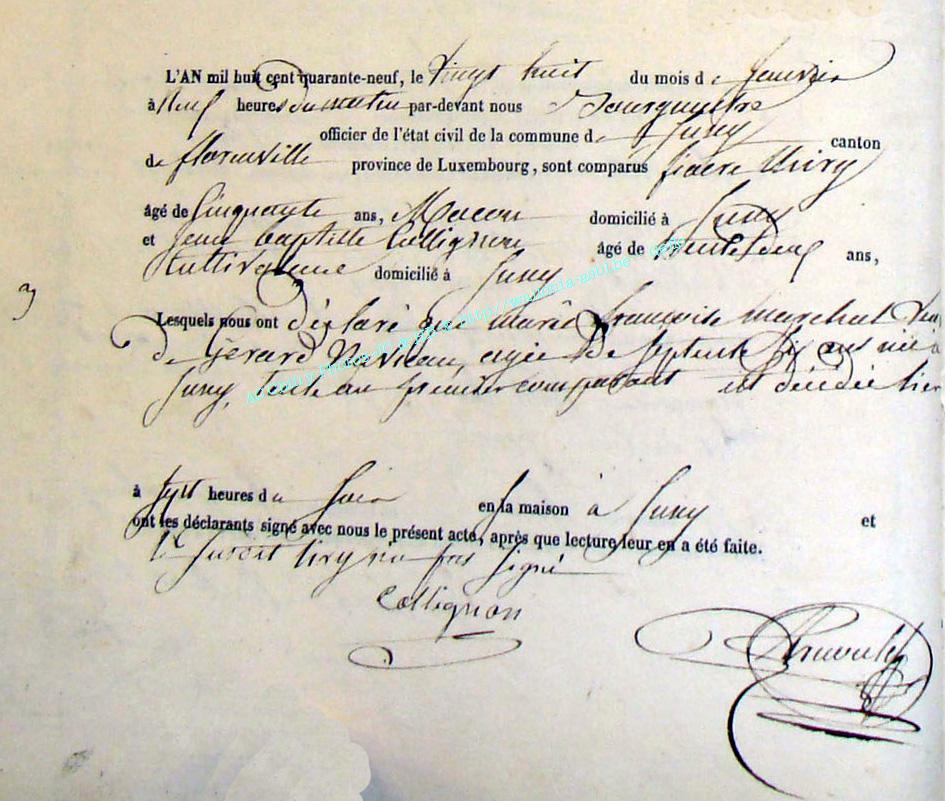 L'AN mil huit cent quarante-neuf, le vingt huit du mois de Janvier
à Neuf heures du matin par-devant nous Bourgumestre
officier de l'état civil de la commune de Izel canton
de florenville province de Luxembourg, sont comparus fiacre thiry
âgé de Cinquante ans, Macon domicilié à
et Jean baptiste Collignon âgé de trente neuf ans,
Cultivateur domicilié à
Lesquels nous ont déclaré que Marie françoise marchal
de Gérard agée de septante six ans née à
tante au premier comparant est décédée hier
à sept heures du Soir en la maison à et
ont les déclarants signé avec nous le présent acte, après que lecture leur en a été faite.
le susdit tiry n'a pas signé
Collignon
3